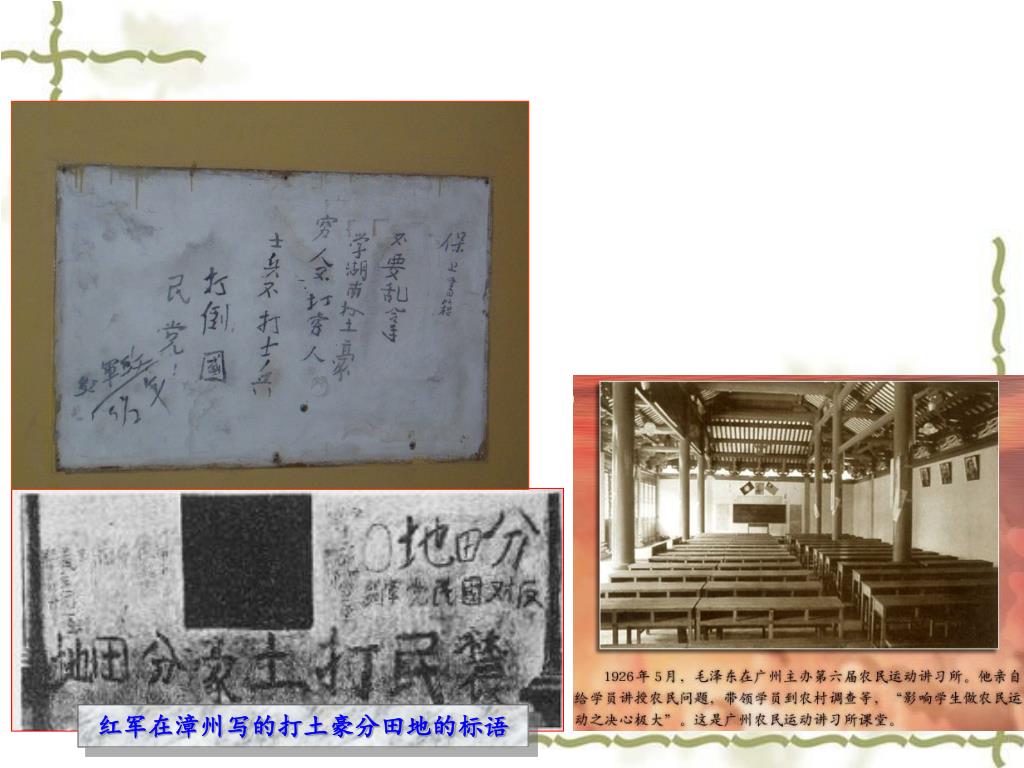 保卫書籍
不要乱拿
学湖南打土豪
穷人不打穷人
士兵不打士兵
打倒國
民党！
分田地
反对國民党軍
農民打土豪分田地
红军在漳州写的打土豪分田地的标语
1926年5月，毛泽东在广州主办第六届农民运动讲习所。他亲自
给学员讲授农民问题，带领学员到农村调查等，“影响学生做农民运
动之决心极大”。这是广州农民运动讲习所课堂。